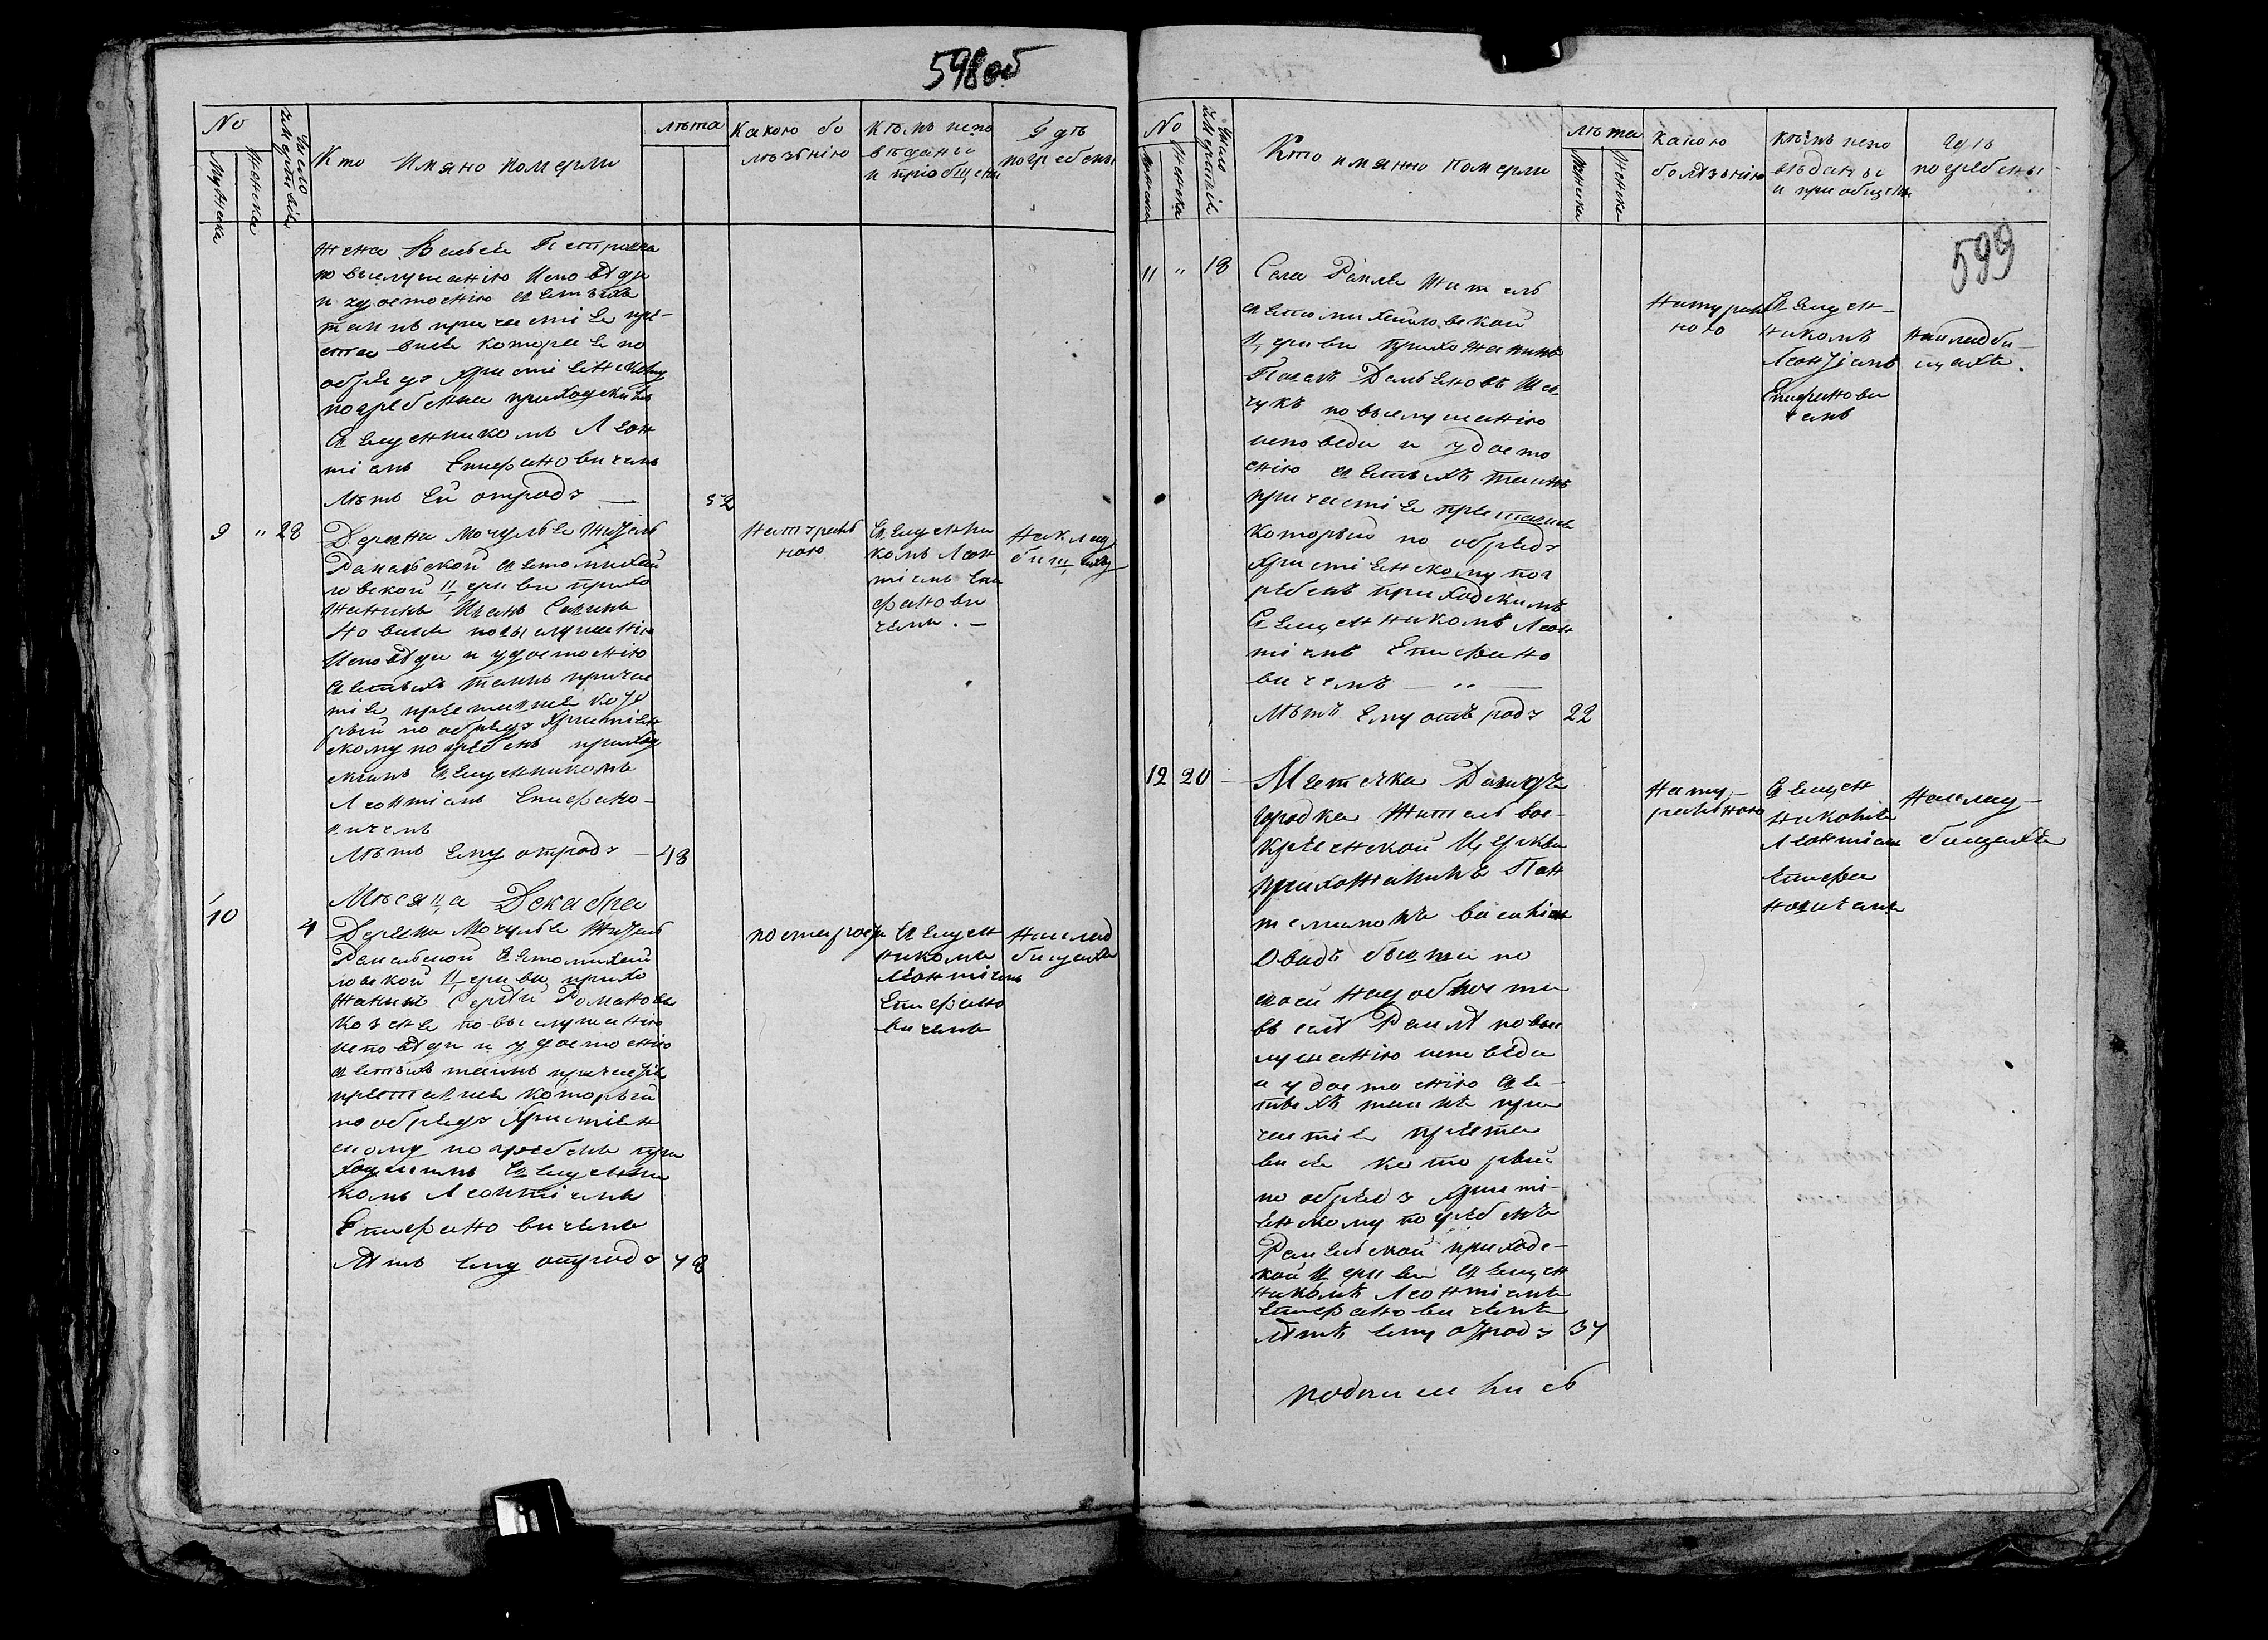 598 об
No
Мужеска
Женска
Число
умертвія
Кто Имяно померли
лѣта
Какою бо
лѣзнію
Кѣмъ испо
вѣданы
и пріобщены
Гдѣ
погребены
жена Петрова
по выслушанію Исповѣди
и удостоенію святыхъ
таинъ причастія пре-
ставися которая по
обряду христіянскому
погребенна приходскимъ
Священникомъ Леон
тіемъ Епифановичемъ
лѣтъ ей отроду —
52
9 " 28
Деревни Мочулъ житель
Рапальской святомихай
ловской Церкви прихо
жанинъ Иванъ
по выслушанію
Исповѣди и удостоенію
святыхъ таинъ причас
тія преставися кото
рый по обряду христіян
скому погребенъ приход
скимъ священникомъ
Леонтіемъ Епифано-
вичемъ
лѣтъ ему отроду — 48
натураль
ною
Священни
комъ Леон
тіемъ Епи
фанови
чемъ. —
Наклад
бищахъ
Мѣсяца Декабра
10
4
Деревни Мочулъ житель
святомихай
ловской Церкви прихо
жанинъ Сергѣй Романовъ
по выслушанію
исповѣди и удостоенію
святыхъ таинъ причастія
преставися который
по обряду Христіян
скому погребенъ при
ходскимъ Священни
комъ Леонтіемъ
Епифановичемъ
Лѣтъ ему отроду 78
по старости
Священ
никомъ
Леонтіемъ
Епифано
вичемъ
Наклад
бищахъ
599
No
Мужеска
Женска
Число
умертвія
Кто имянно померли
лѣта
мужска
женска
какою
болѣзнію
Кѣмъ испо
вѣданы
и пріобщены
Гдѣ
погребены
11 " 18
Села житель
святомихайловской
Церкви прихожанинъ
Демьяновъ Шев
чукъ по выслушанію
исповеди и удосто
енію святыхъ таинъ
причастія преставися
который по обряду
христіянскому пог
ребенъ приходскимъ
Священникомъ Леон
тіемъ Епифано
вичемъ — " —
Лѣтъ ему отъ роду 22
Натураль
ною
Священ-
никомъ
Леонтіемъ
Епифанови
чемъ
Накладби-
щахъ.
12 20 —
Местечка Давидъ
городка житель вос-
кресенской Церкви
прихожанинъ Пан
телимонъ
бывши по
своей надобности
въ селѣ по выс
лушанію исповеди
и удостоенію свя-
тыхъ таинъ при
частія преста
вися который
по обряду Христі-
янскому погребенъ
приходс-
кой Церкви Священ
никомъ Леонтіемъ
Епифановичемъ
лѣтъ ему отроду 37
Нату-
ральною
Священ
никомъ
Леонтіемъ
Епифа
новичемъ
Наклад-
бищахъ